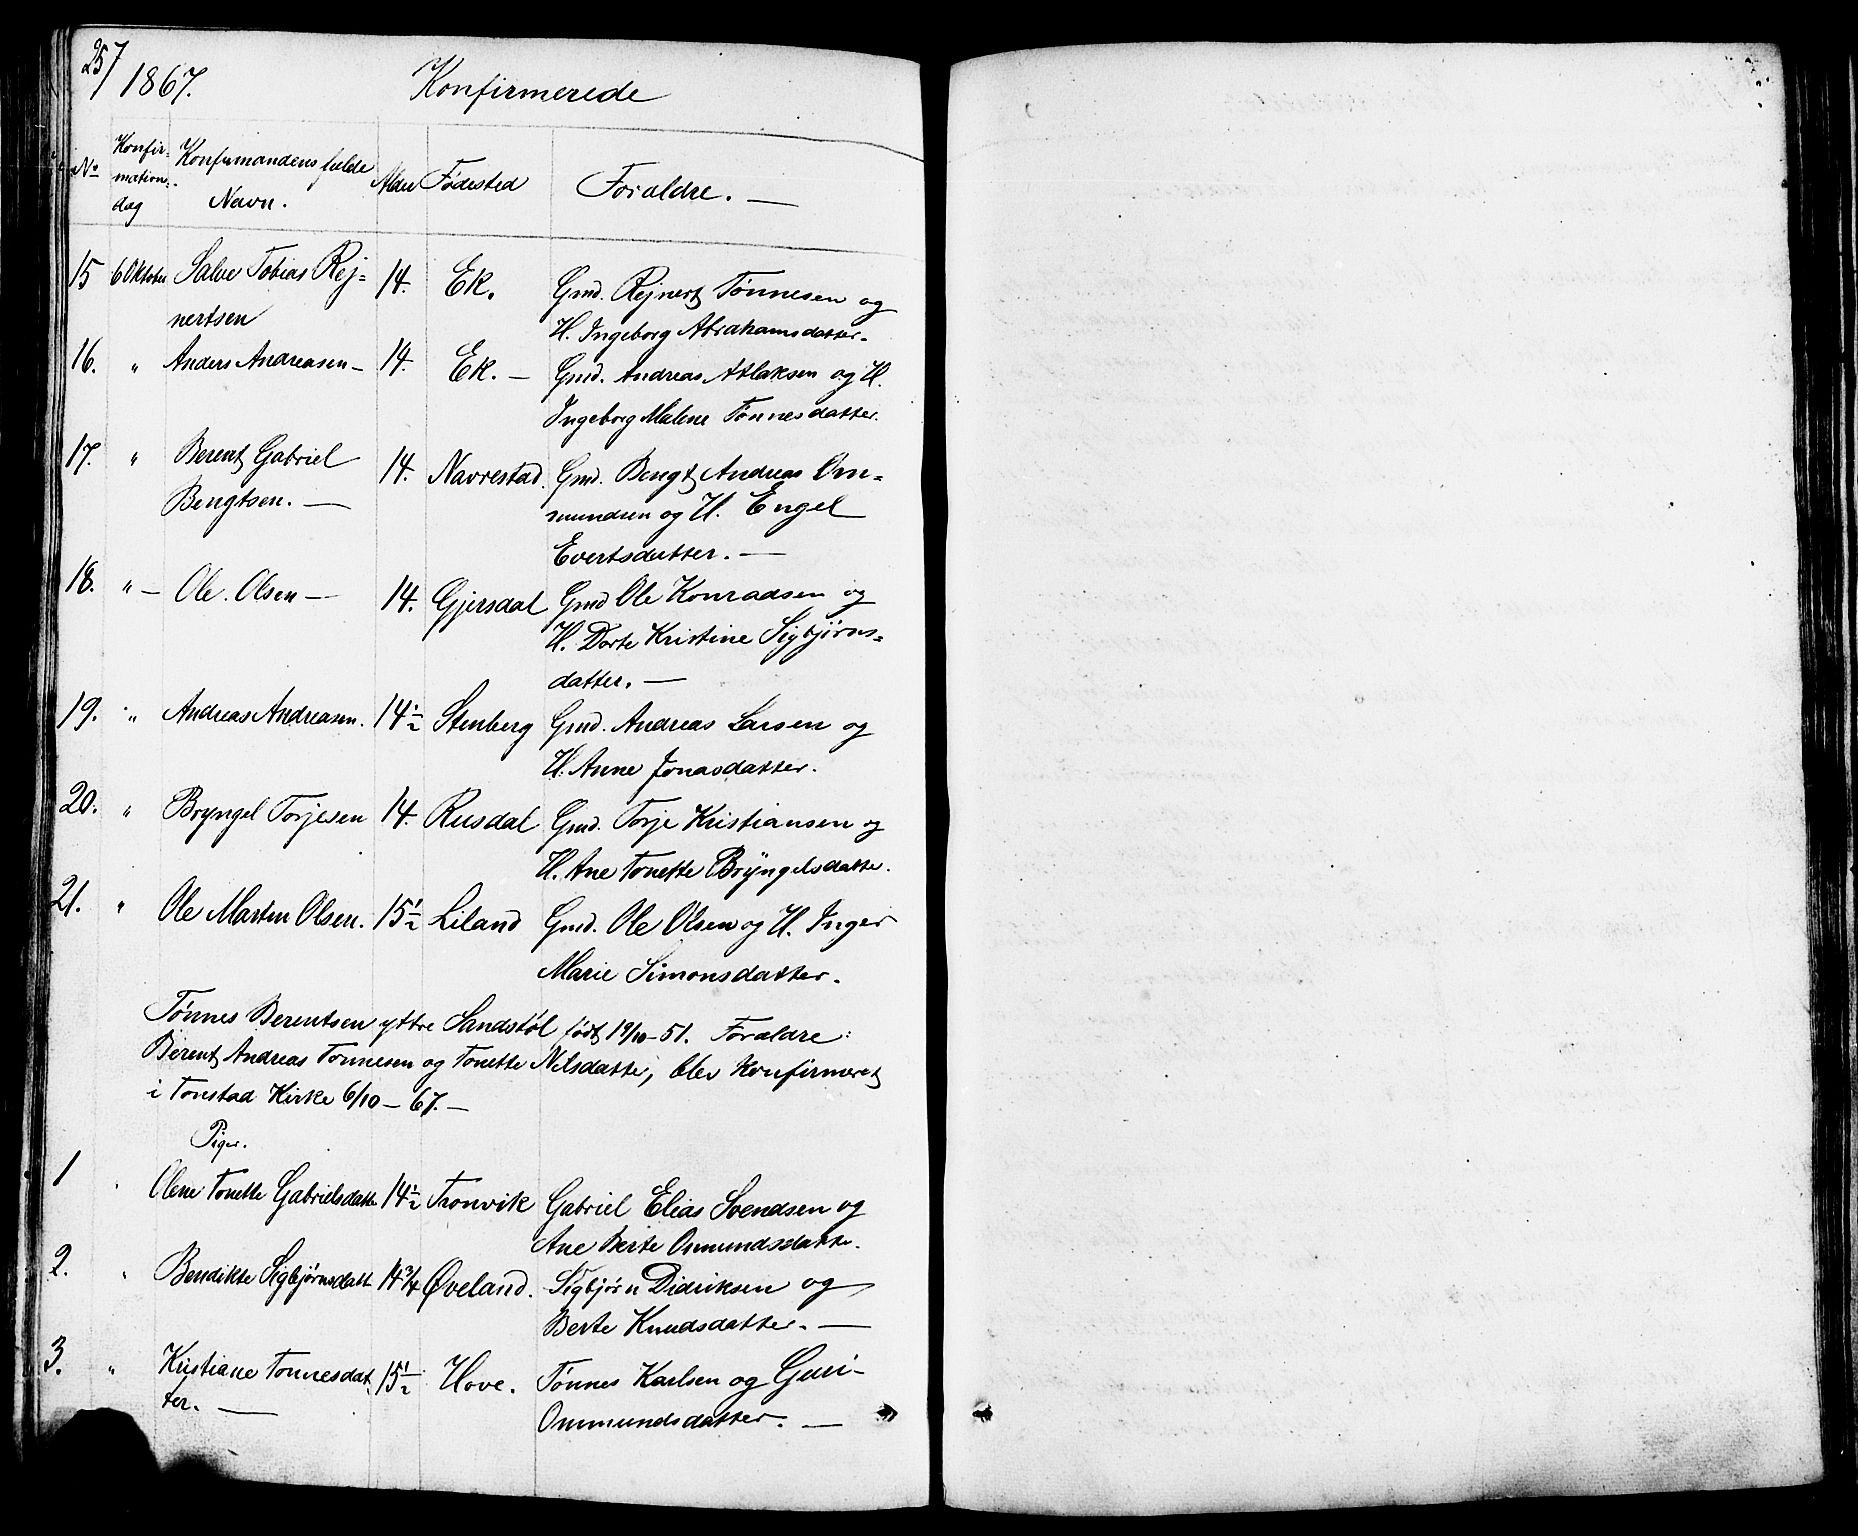 257
1867. Konfirmerede
No Konfir- mation- dag Konfirmandens fulde Navn. Alder Fødested Foraldre. —
15 6 Oktober Salve Tobias Rej= 14. Ek. Gmd. Rejnert Tønnesen og
nertsen H. Ingeborg Abrahamsdatter.
16. " Anders Andreasen — 14. Ek. — Gmd. Andreas Atlaksen og H.
Ingeborg Malene Tønnesdatter.
17. " Berent Gabriel 14. Navrestad. Gmd. Bengt Andreas Om=
Bengtsen. — mundsen og H. Engel
Evertsdatter. —
18. " — Ole. Olsen — 14. Gjersdal Gmd Ole Konradsen og
H. Dorte Kristine Sigbjørns=
datter. —
19. " Andreas Andreasen. 14½ Stenberg Gmd. Andreas Larsen og
H. Anne Jonasdatter.
20. " Bryngel Torjesen 14. Rusdal Gmd. Torje Kristiansen og
H. Ane Tonette Bryngelsdatte.
21. " Ole Martin Olsen. 15½ Liland Gmd. Ole Olsen og H. Inger
Marie Simonsdatter.
Tønnes Berentsen yttre Sandstøl født 19/10-51. Foraldre:
Berent Andreas Tonnesen og Tonette Nilsdatte, blev Konfirmeret
i Tonstad Kirke 6/10 — 67. —
Piger.
1 " Olene Tonette Gabrielsdatte 14½ Tronvik Gabriel Elias Svendsen og
Ane Berte Ommundsdatte.
2. " Bendikte Sigbjørnsdatt 14¾ Øveland. Sigbjørn Didriksen og
Berte Knudsdatter. —
3. " Kristiane Tonnesdat 15½ Hove. Tønnes Karlsen og Guri —
ter. — Ommundsdatter. —